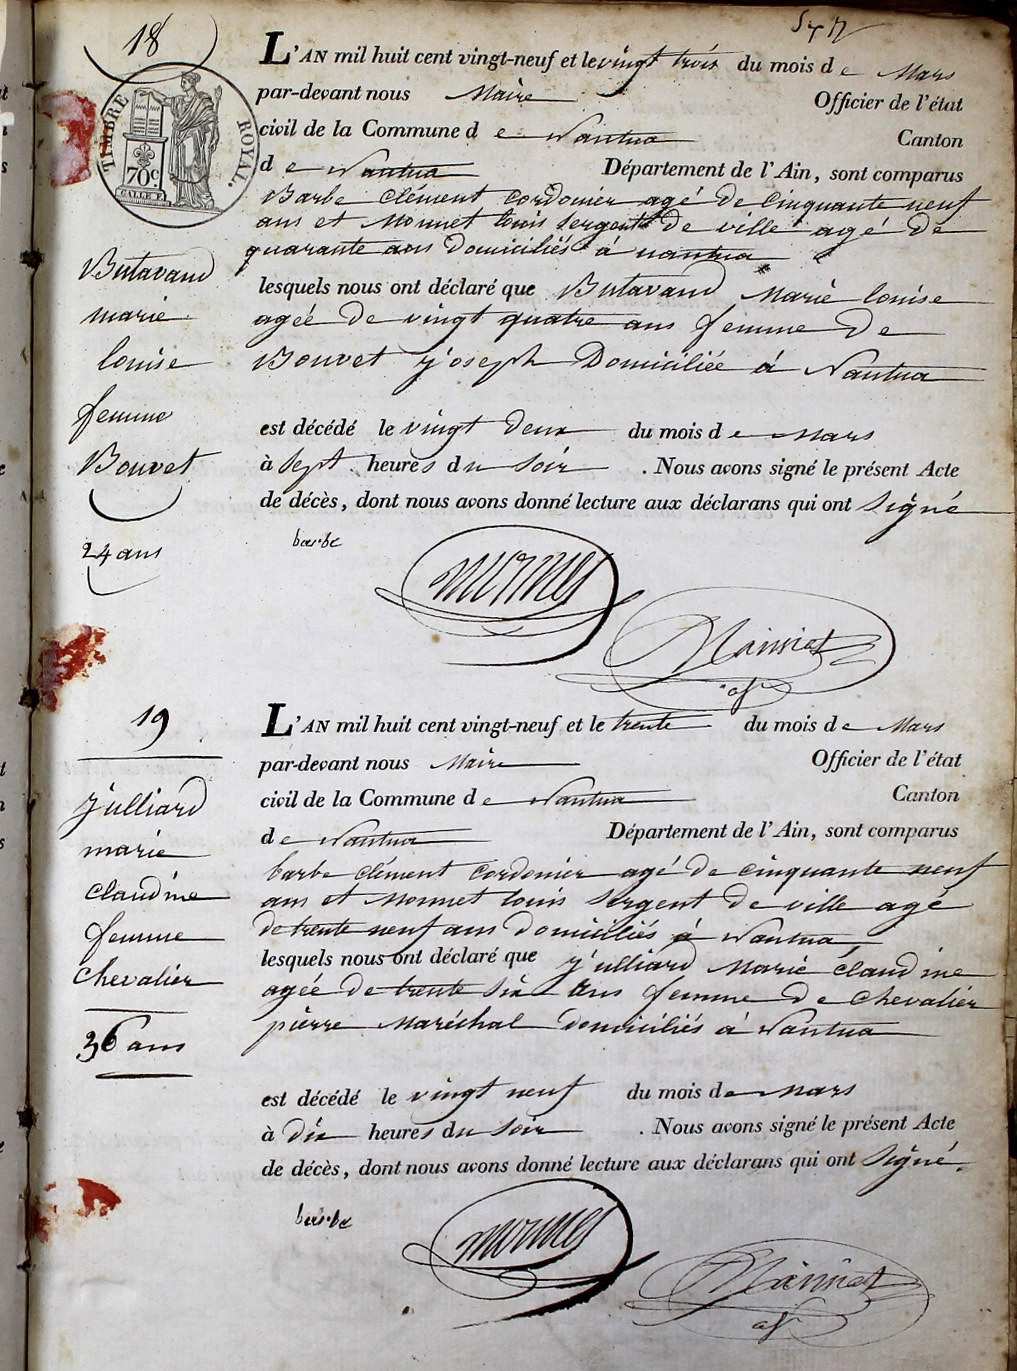 18
TIMBRE ROYAL.
70c
L'AN mil huit cent vingt-neuf et le vingt trois du mois de Mars
par-devant nous Maire Officier de l'état
civil de la Commune de Nantua Canton
de Nantua Département de l'Ain, sont comparus
Barbe clément cordonier agé de cinquante neuf
ans et Monnet louis sergent de ville agé de
quarante ans domiciliés à nantua
lesquels nous ont déclaré que Butavand Marie louise
agée de vingt quatre ans femme de
Bouvet joseph Domiciliée à Nantua
est décédé le vingt deux du mois de Mars
à sept heures du soir . Nous avons signé le présent Acte
de décès, dont nous avons donné lecture aux déclarans qui ont signé
Butavand
marie
louise
femme
Bouvet
24 ans
barbe
monnet
19
L'AN mil huit cent vingt-neuf et le trente du mois de Mars
par-devant nous Maire Officier de l'état
civil de la Commune de Nantua Canton
de Nantua Département de l'Ain, sont comparus
barbe clément cordonier agé de cinquante neuf
ans et Monnet louis sergent de ville agé
de trente neuf ans domiciliés à Nantua
lesquels nous ont déclaré que julliard Marie claudine
agée de trente six ans femme de chevalier
pierre Maréchal domiciliés à Nantua
est décédé le vingt neuf du mois de Mars
à dix heures du soir . Nous avons signé le présent Acte
de décès, dont nous avons donné lecture aux déclarans qui ont signé.
julliard
marie
claudine
femme
chevalier
36 ans
barbe
monnet